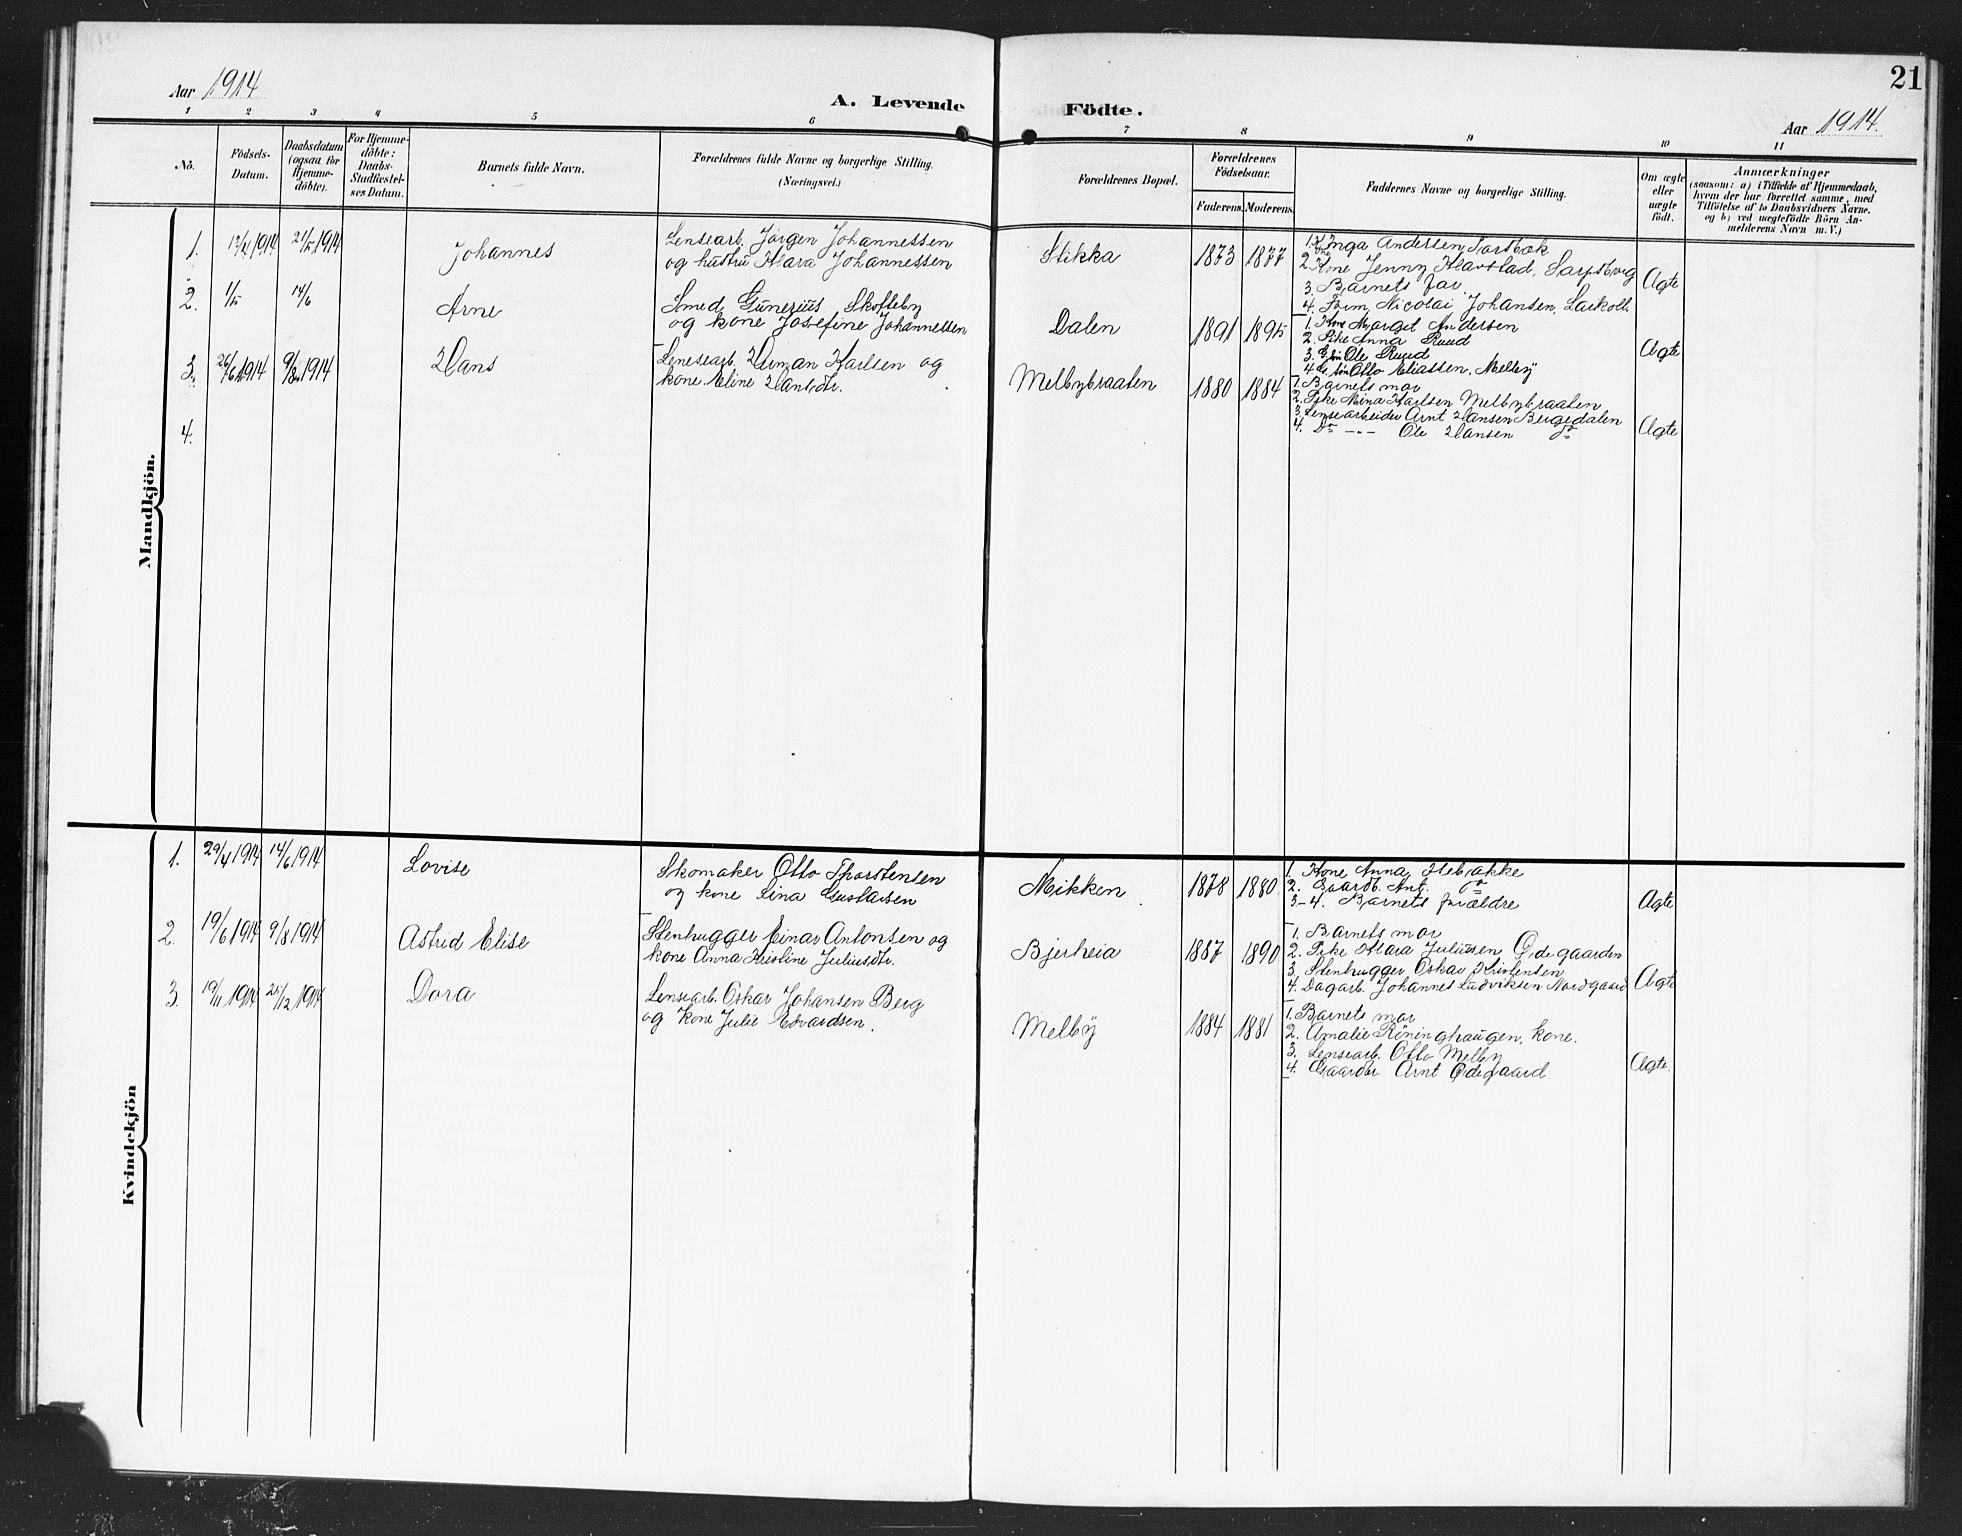 Aar 1914
A. Levende Födte.
21
Aar 1914.
1 2 3 4 5 6 7 8 9 10 11
No.
Födsels-
Datum.
Daabsdatum
(ogsaa for
Hjemme-
döbte).
For Hjemme-
döbte:
Daabs-
Stadfæstel-
ses Datum.
Barnets fulde Navn.
Forældrenes fulde Navne og borgerlige Stilling.
(Næringsvei.)
Forældrenes Bopæl.
Forældrenes
Födselsaar.
Faderens. Moderens.
Faddernes Navne og borgerlige Stilling.
Om ægte
eller
uægte
födt.
Anmærkninger
(saasom: a) i Tilfælde af Hjemmedaab,
hvem der har forrettet samme, med
Tilföielse af to Daabsvidners Navne.
og b) ved uægtefödte Börn An-
melderens Navn m. V.)
Mandkjön.
1. 1914 21/5 1914 Johannes
Lensearb. Jørgen Johannessen
og hustru Klara Johannessen
Stikka 1873 1877
1. Inga Andersen, Tarsbæk
2. Kone Jenny Klavestad, Sarpsborg
3. Barnets far
4. Form. Nicolai Johansen, Larkoll.
Ægte
2. 1/5 14/6 Arne
Smed Gunerius Skofteby
og kone Josefine Johannessen
Dalen 1891 1895
1. Kone Margit Andersen
2. Pike Anna Ruud
3. Ole Ruud
4. Otto Eliassen, Melby
Ægte
3. 26/6 1914 9/8 1914 Hans
Lensearb. Herman Karlsen og
kone Eline Hansdtr.
Melbybraaten 1880 1884
1. Barnets mor
2. Pike Mina Karlsen Melbybraaten
3. Lensearbeider Arnt Hansen Bergedalen
4. Do -"- Ole Hansen do
Ægte
4.
Kvindekjön
1. 29/4 1914 14/6 1914 Lovise
Skomaker Otto Thorstensen
og kone Lina Gustavsen
Mikken 1878 1880
1. Kone Anna Stebrække
2. Gaardb. Ant. do
3-4. Barnets forældre
Ægte
2. 19/6 1914 9/8 1914 Astrid Elise
Stenhugger Einar Antonsen og
kone Anna Kristine Juliusdtr.
Bjerkeia 1887 1890
1. Barnets mor
2. Pike Klara Juliussen Ødegaarden
3. Stenhugger Oskar Kristensen
4. Dagarb. Johannes Ludviksen Nordgaard
Ægte
3. 19/11 1914 25/12 1914 Dora
Lensearb. Oskar Johansen Berg
og kone Julie Edvardsen.
Melby 1884 1881
1. Barnets mor
2. Amalie Rønninghaugen, kone.
3. Lensearb. Otto Melby
4. Gaardbr. Arnt Ødegaard
Ægte.